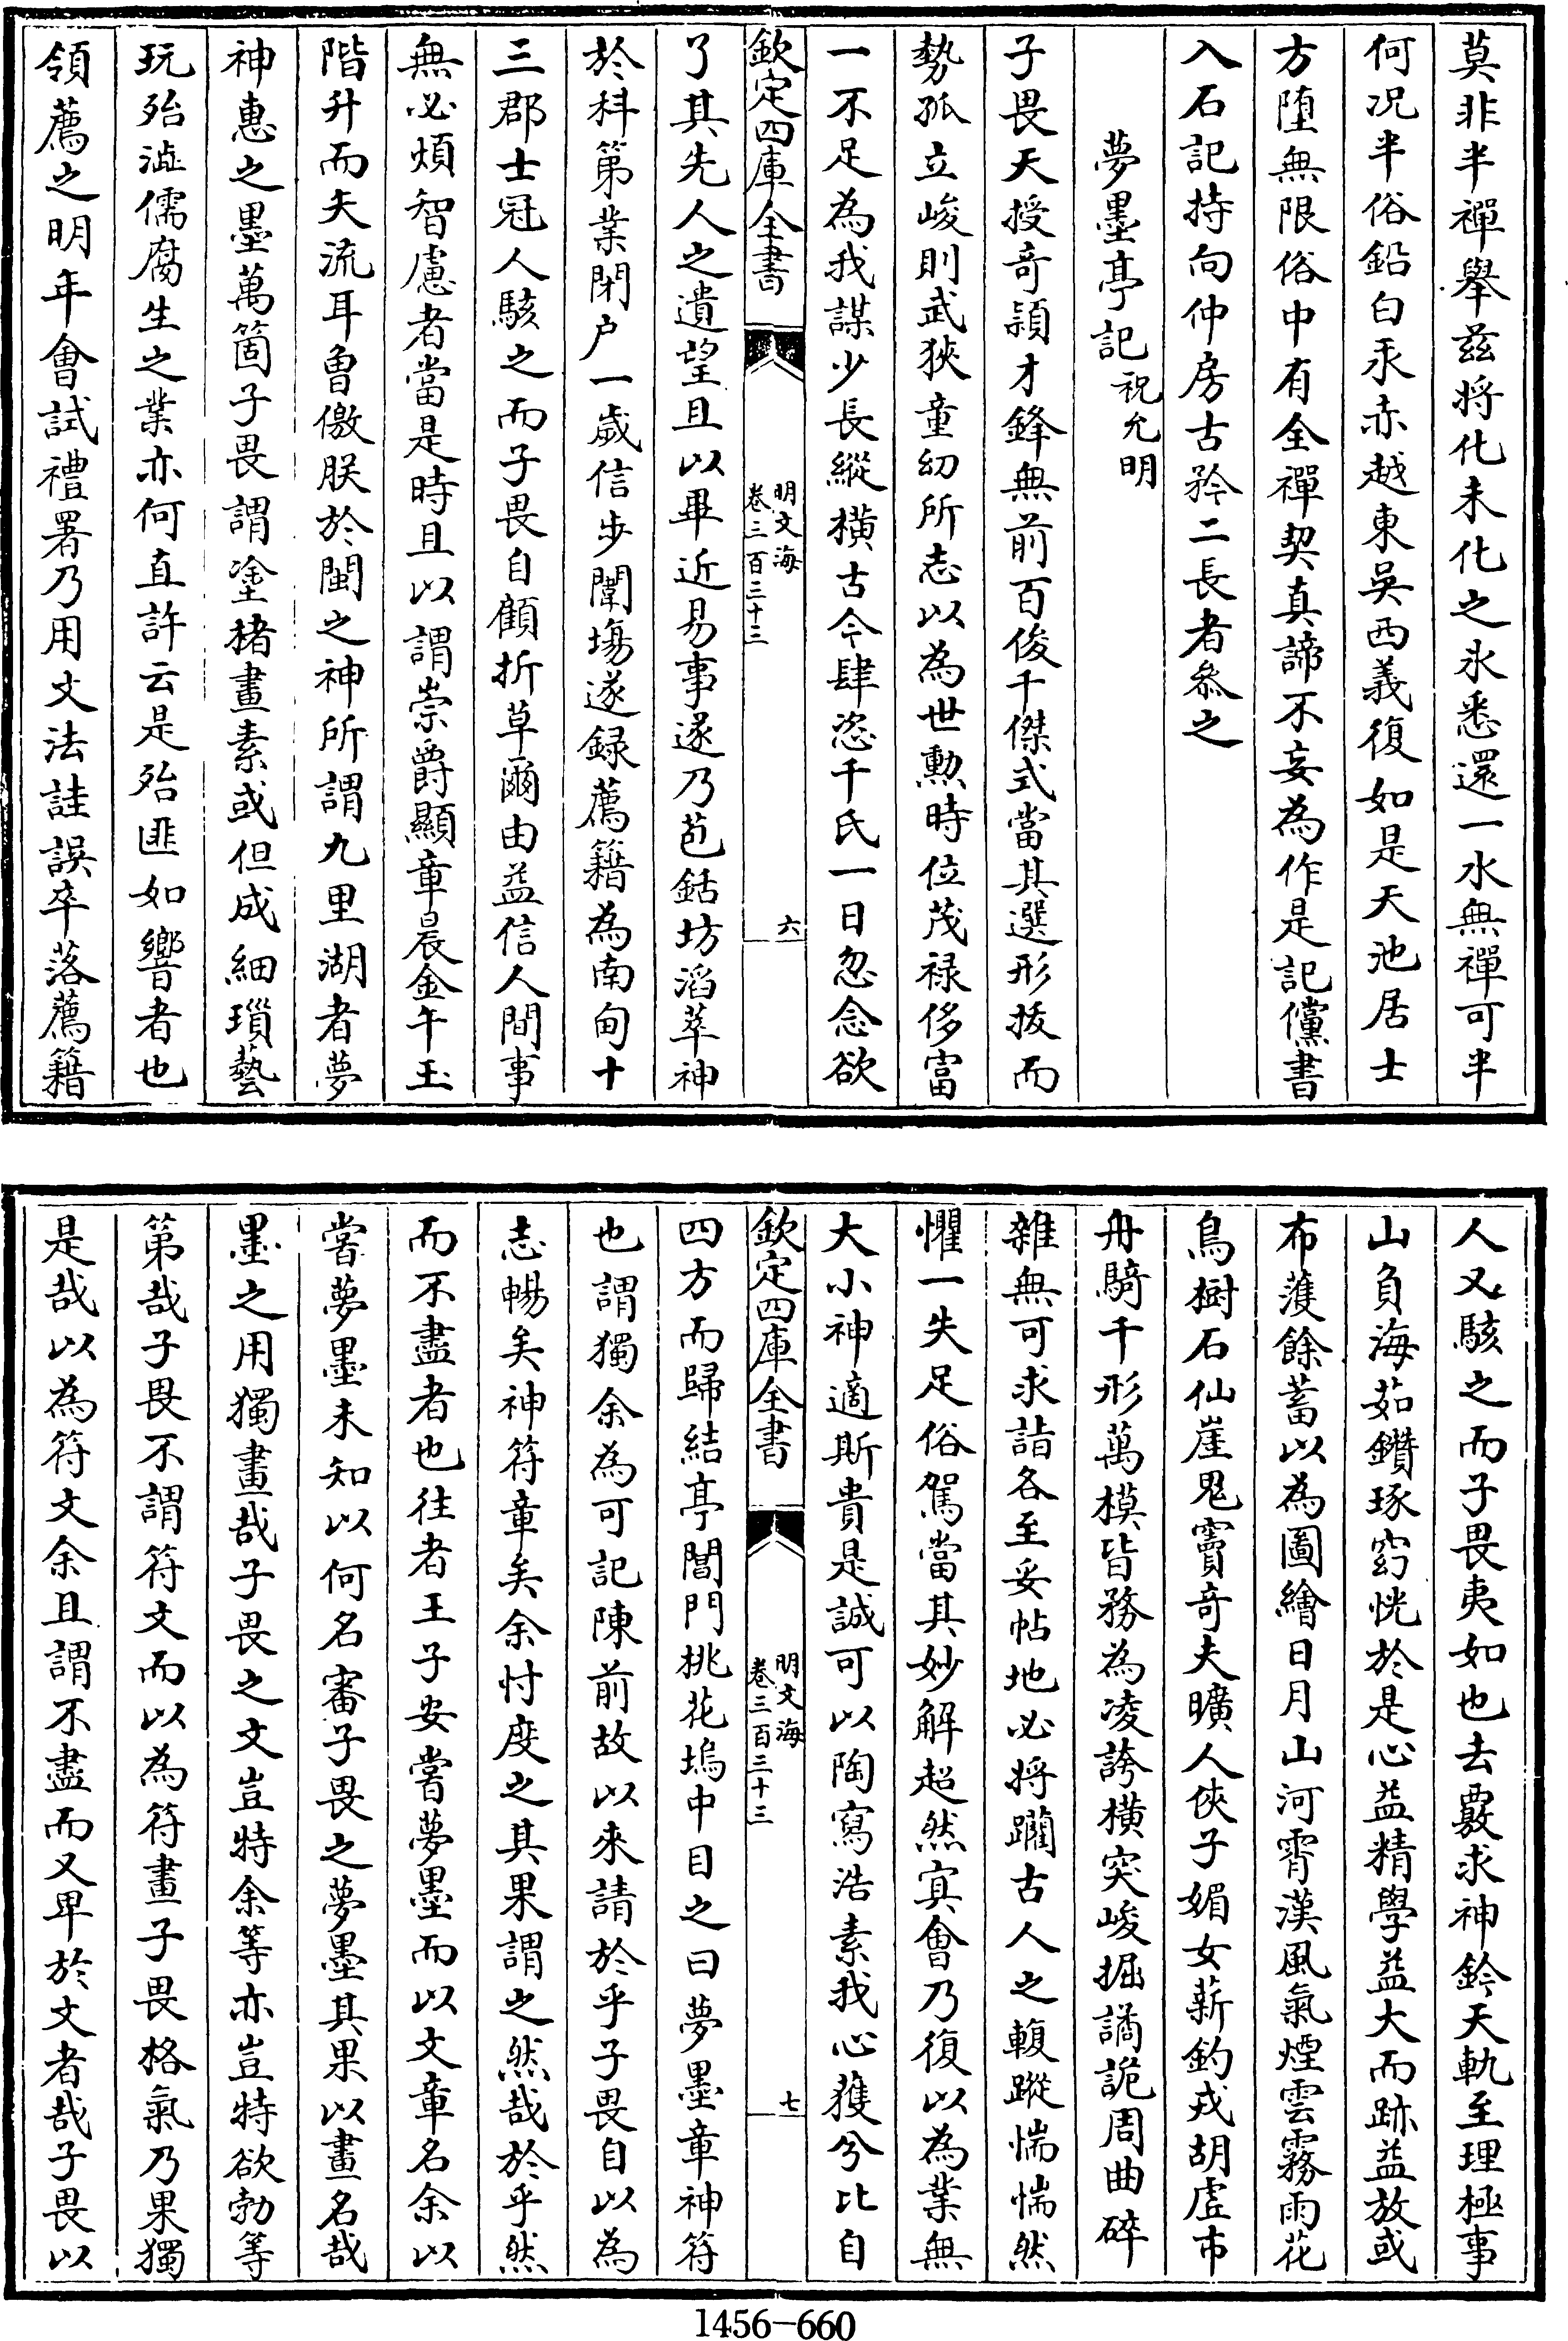 莫非半禪舉茲将化未化之氷悉還一水無禪可半
何况半俗鉛白汞赤越東吳西義復如是天池居士
方墮無限俗中有全禪契真諦不妄為作是記儻書
入石記持向仲房古矜二長者叅之
夢墨亭記祝允明
子畏天授奇頴才鋒無前百俊千傑式當其選形拔而
勢孤立峻則武狹童幼所志以為世勲時位茂禄侈富
一不足為我謀少長縱橫古今肆恣千氏一日忽念欲
欽定四庫全書
明文海
卷三百三十三
六
了其先人之遺望且以畢近易事遂乃苞銛坊滔萃神
於科第業閉户一歲信步闈塲遂録薦籍為南甸十
三郡士冠人駭之而子畏自顧折草爾由益信人間事
無必煩智慮者當是時且以謂崇爵顯章晨金午玉
階升而夫流耳曽儌朕於閩之神所謂九里湖者夢
神惠之墨萬箇子畏謂塗楮畫素或但成細瑣藝
玩殆澁儒腐生之業亦何直許云是殆匪如響者也
領薦之明年會試禮署乃用文法詿誤卒落薦籍
人又駭之而子畏夷如也去覈求神鈐天軌至理極事
山負海茹鑽琢窈恍於是心益精學益大而跡益放或
布濩餘蓄以為圖繪日月山河霄漢風氣煙雲霧雨花
鳥樹石仙崖鬼竇奇夫曠人俠子媚女薪釣戎胡虚市
舟騎千形萬模皆務為凌誇橫突峻掘譎詭周曲碎
雜無可求詣各至妥帖地必将躝古人之輹蹤惴惴然
懼一失足俗駕當其妙解超然寘會乃復以為業無
大小神適斯貴是誠可以陶寫浩素我心獲兮比自
欽定四庫全書
明文海
卷三百三十三
七
四方而歸結亭閶門桃花塢中目之曰夢墨章神符
也謂獨余為可記陳前故以來請於乎子畏自以為
志暢矣神符章矣余忖度之其果謂之然哉於乎然
而不盡者也往者王子安嘗夢墨而以文章名余以
嘗夢墨未知以何名審子畏之夢墨其果以畫名哉
墨之用獨畫哉子畏之文豈特余等亦豈特欲勃等
第哉子畏不謂符文而以為符畫子畏格氣乃果獨
是哉以為符文余且謂不盡而又卑於文者哉子畏以
1456-660